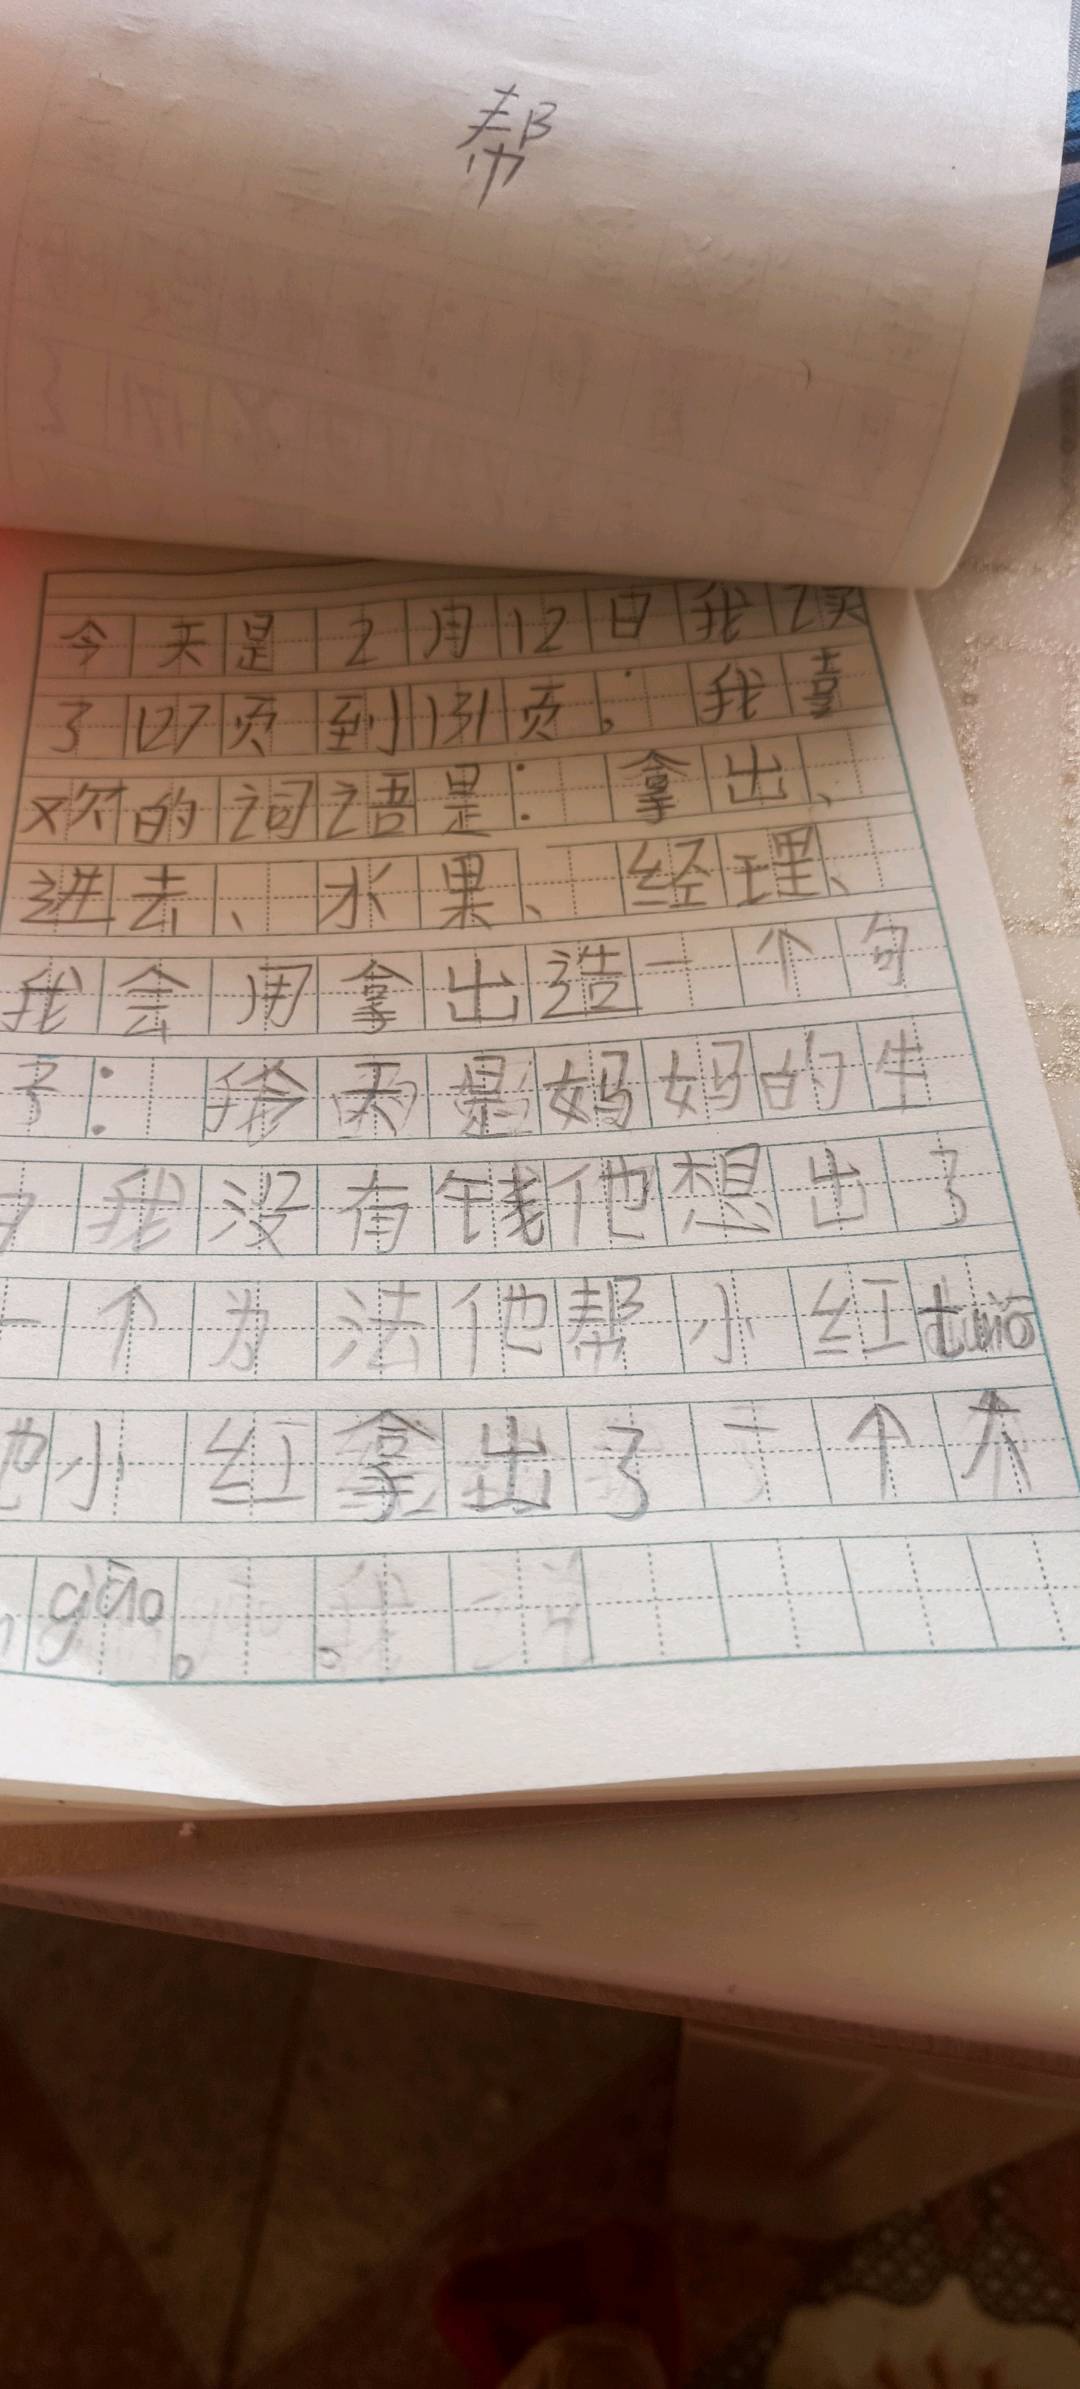 帮
今天是2月12日我读
了127页到131页。我喜
欢的词语是：拿出、
进去、水果、经理、
我会用拿出造一个句
子：天是妈妈的生
我没有钱他想出了
一个为法他帮小红
小红拿出了一个大
gāo。